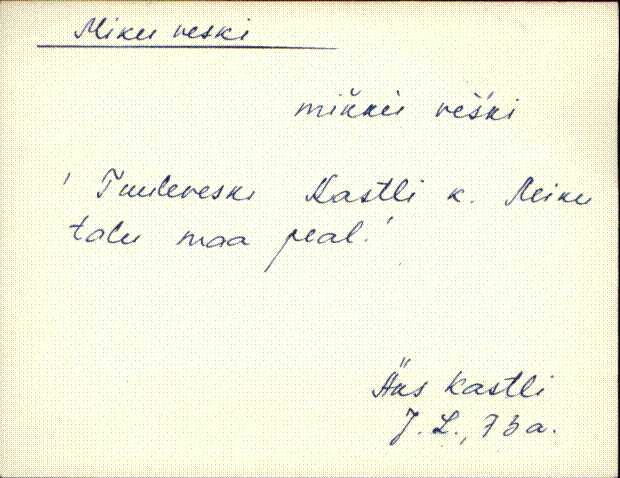 Miku veski
mikku veski
' Tuuleveski Kastli k. Miku
talu maa peal.'
Äks Kastli
J. L., 73a.